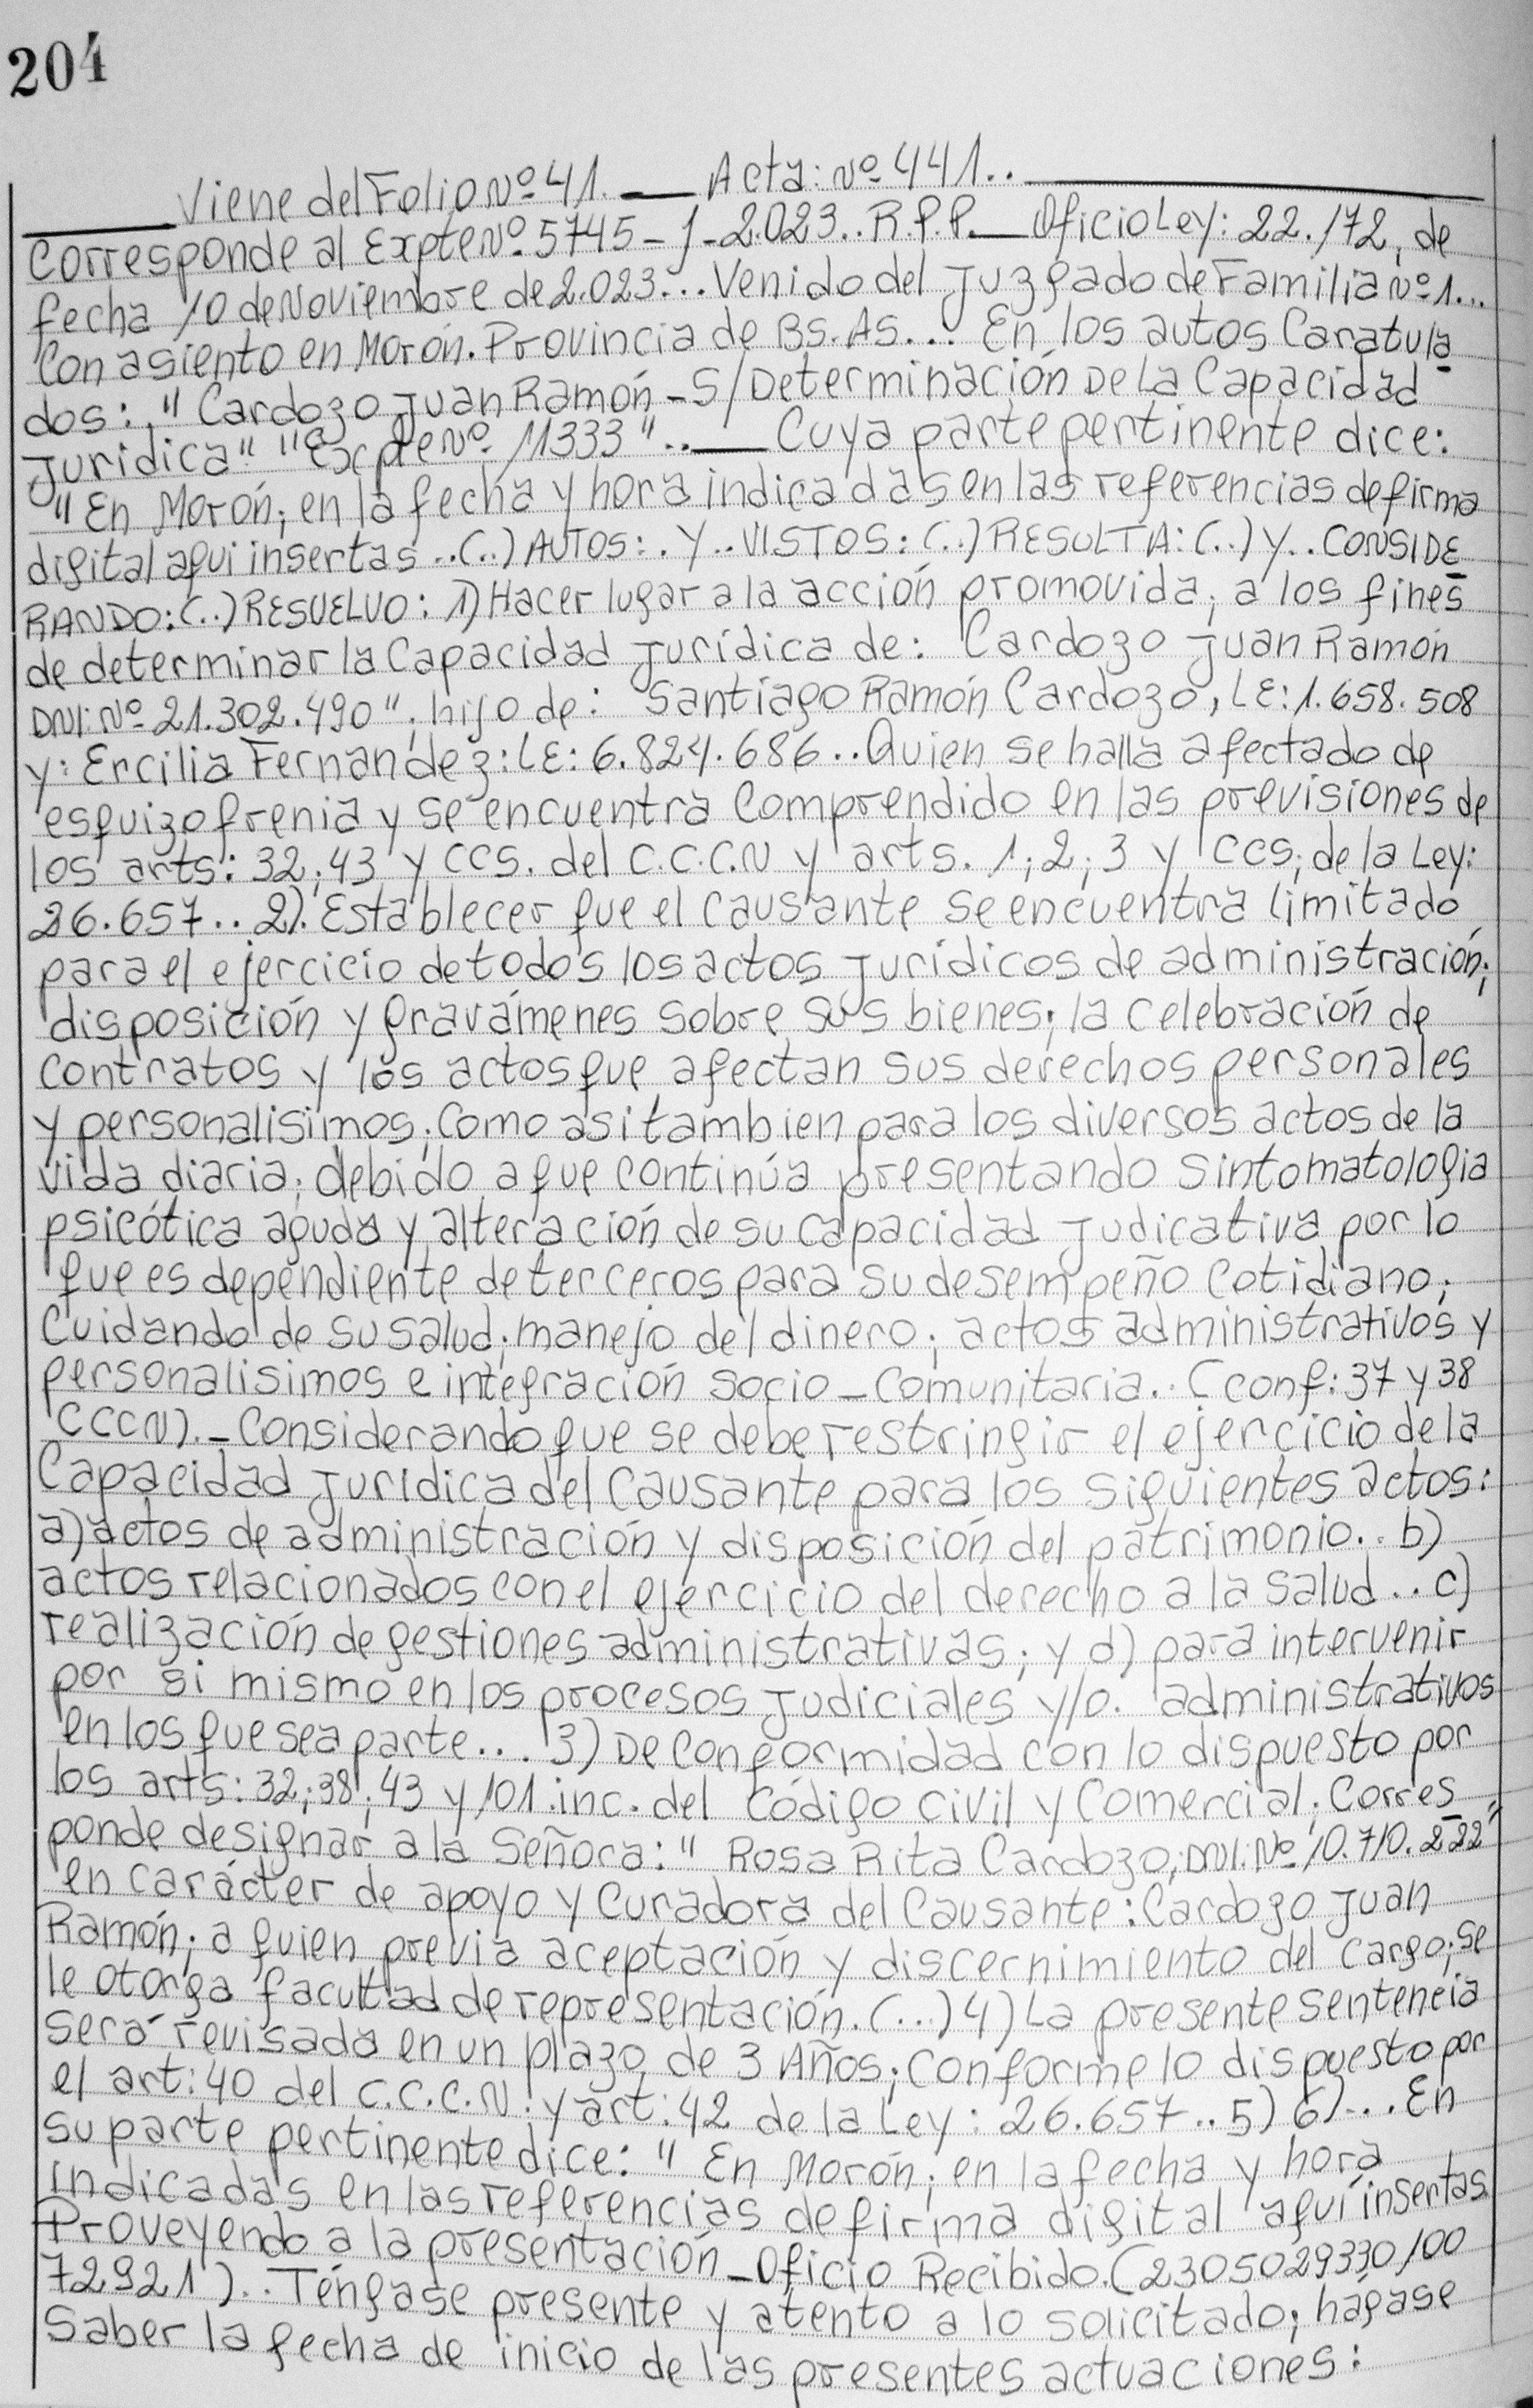 204
Viene del Folio Nº 41. — Acta: Nº 441..
Corresponde al Expte Nº 5745-J-2.023.. R.P.P. — Oficio Ley: 22./72, de
fecha 10 de Noviembre de 2.023... Venido del Juzgado de Familia Nº 1...
Con asiento en Morón. Provincia de BS. AS... En los autos Caratula
dos: "Cardozo Juan Ramón - S/Determinación De La Capacidad
Jurídica" "Expte Nº 11333".. — Cuya parte pertinente dice:
"En Morón; en la fecha y hora indicadas en las referencias de firma
digital aqui insertas..(..) AUTOS:. Y.. VISTOS: (..) RESULTA: (..) Y.. CONSIDE
RANDO: (..) RESUELVO: 1) Hacer lugar a la acción promovida; a los fines
de determinar la Capacidad Jurídica de: Cardozo Juan Ramón
DNI: Nº 21.302.490"; hijo de: Santiago Ramón Cardozo, LE: 1.658.508
y: Ercilia Fernández: LE: 6.824.686.. Quien se halla afectado de
esquizofrenia y se encuentra Comprendido en las previsiones de
los arts: 32; 43 y CCS. del C.C.C.N y arts. 1; 2; 3 y CCS; de la Ley:
26.657.. 2). Establecer que el Causante se encuentra limitado
para el ejercicio de todos los actos Jurídicos de administración;
disposición y gravámenes sobre sus bienes; la Celebración de
Contratos y los actos que afectan sus derechos personales
y personalisimos; Como asi tambien para los diversos actos de la
vida diaria; debido a que continúa presentando Sintomatologia
psicótica aguda y alteración de su Capacidad Judicativa por lo
que es dependiente de terceros para su desempeño Cotidiano;
Cuidando de su salud; manejo del dinero; actos administrativos y
personalisimos e integración Socio-Comunitaria.. (conf: 37 y 38
CCCN).- Considerando que se debe restringir el ejercicio de la
Capacidad Jurídica del Causante para los siguientes actos:
a) actos de administración y disposición del patrimonio.. b)
actos relacionados con el ejercicio del derecho a la salud.. c)
realización de gestiones administrativas; y d) para intervenir
por si mismo en los procesos Judiciales y/o. administrativos
en los que sea parte... 3) De Conformidad con lo dispuesto por
los arts: 32; 38; 43 y 101. inc. del Código Civil y Comercial; Corres
ponde designar a la Señora: "Rosa Rita Cardozo; DNI: Nº 10.710.222"
en carácter de apoyo y Curadora del Causante: Cardozo Juan
Ramón; a quien previa aceptación y discernimiento del Cargo; se
le otorga facultad de representación. (...) 4) La presente Sentencia
será revisada en un plazo de 3 Años; Conforme lo dispuesto por
el art: 40 del C.C.C.N. y art: 42 de la Ley: 26.657.. 5) 6)... En
su parte pertinente dice: "En Morón; en la fecha y hora
indicadas en las referencias de firma digital aquí insertas
Proveyendo a la presentación - Oficio Recibido. (2305029330100
72921).. Téngase presente y atento a lo solicitado; hágase
Saber la fecha de inicio de las presentes actuaciones: